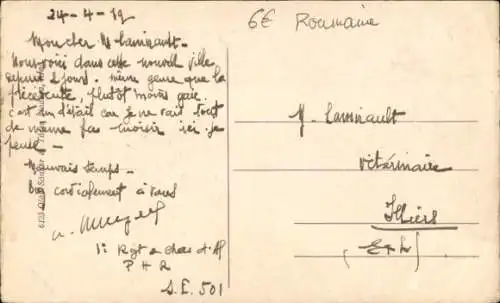 24-4-19
6€ Roumanie
Mon cher M. Laminault.
Nous voici dans cette nouvelle ville
depuis 2 jours. même genre que la
précédente, plutôt moins gaie
c'est un détail car je ne vais tout
de même pas moisir ici je
pense -
Mauvais temps -
Bien cordialement à vous
1e Regt a chas d'Af
P H R
S.E. 501
M. Laminault
Vétérinaire
Illiers
(E & L)